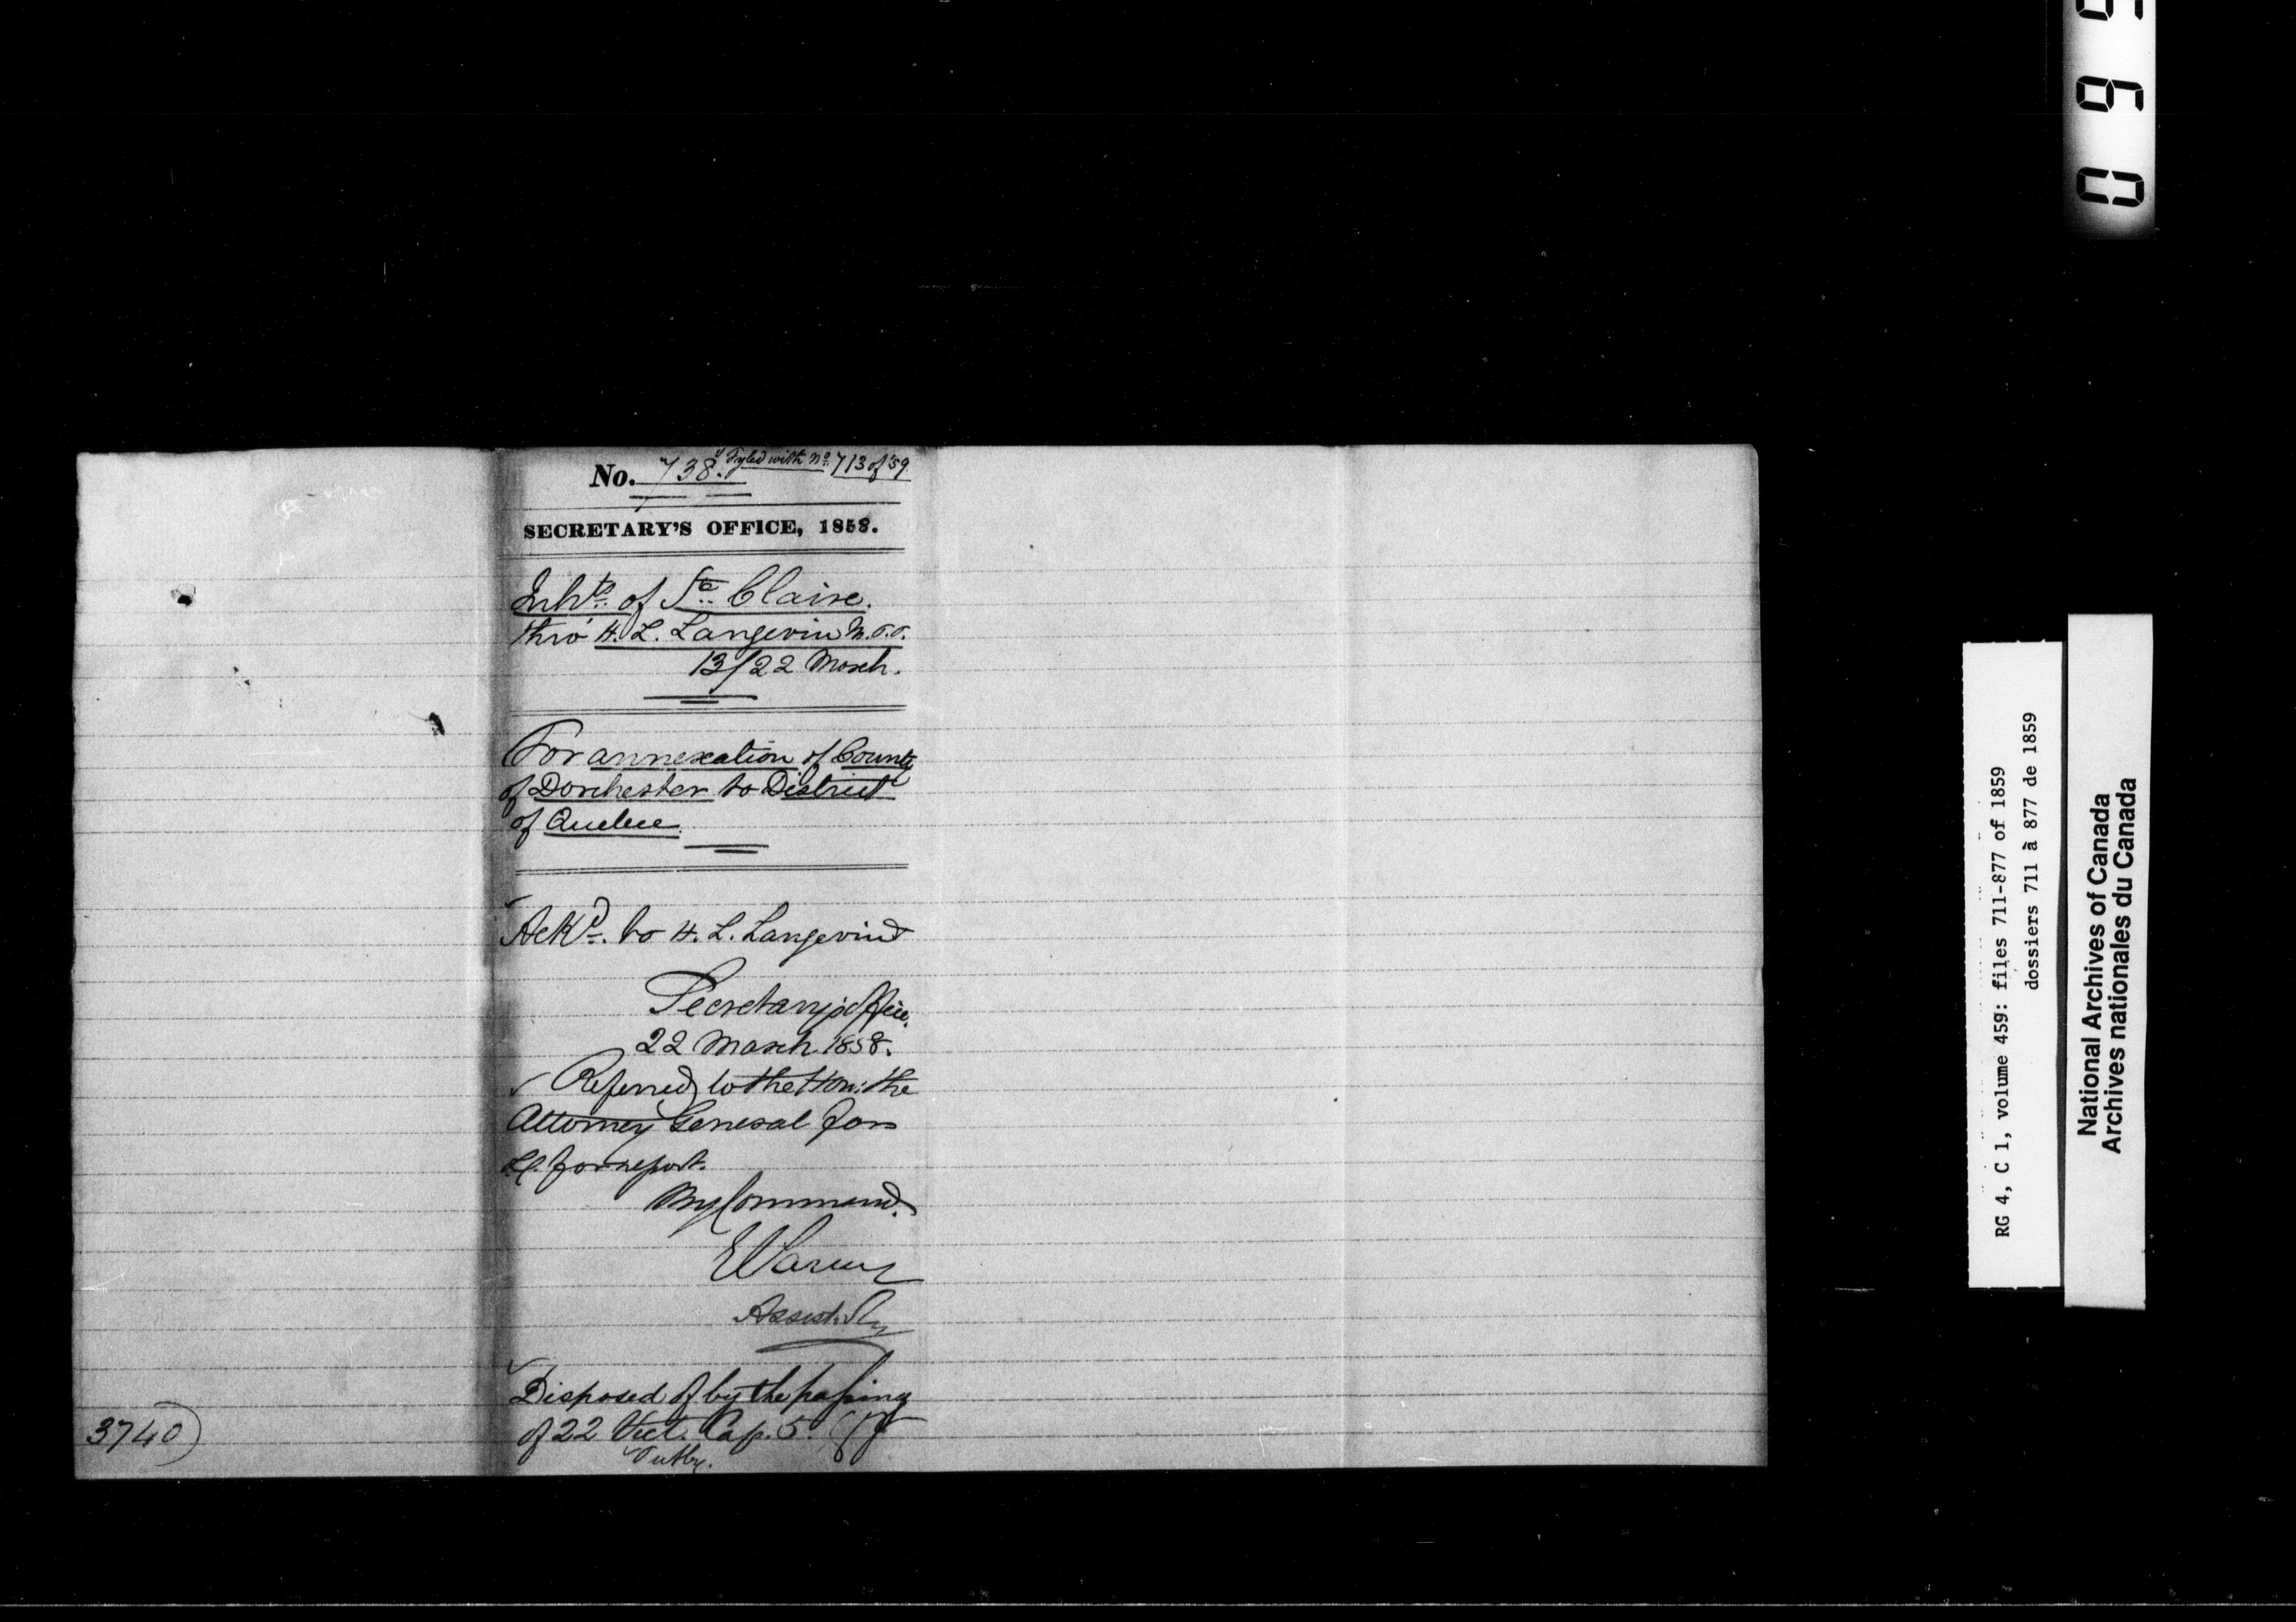 No. 738. Fyled with No. 713 of '59.
SECRETARY'S OFFICE, 1858.
Inhts. of Ste. Claire.
thro' H. L. Langevin M.P.P.
13/22 March.
For annexation of County
of Dorchester to District
of Quebec.
Ackd. to H. L. Langevin
Secretary's Office,
22 March 1858.
Referred to the Hon: the
Attorney General for
L.C. for report.
By Command.
Assist. Secy
Disposed of by the passing
of 22 Vict. Cap. 5.
3740
RG 4, C 1, volume 459: files 711-877 of 1859
dossiers 711 à 877 de 1859
National Archives of Canada
Archives nationales du Canada